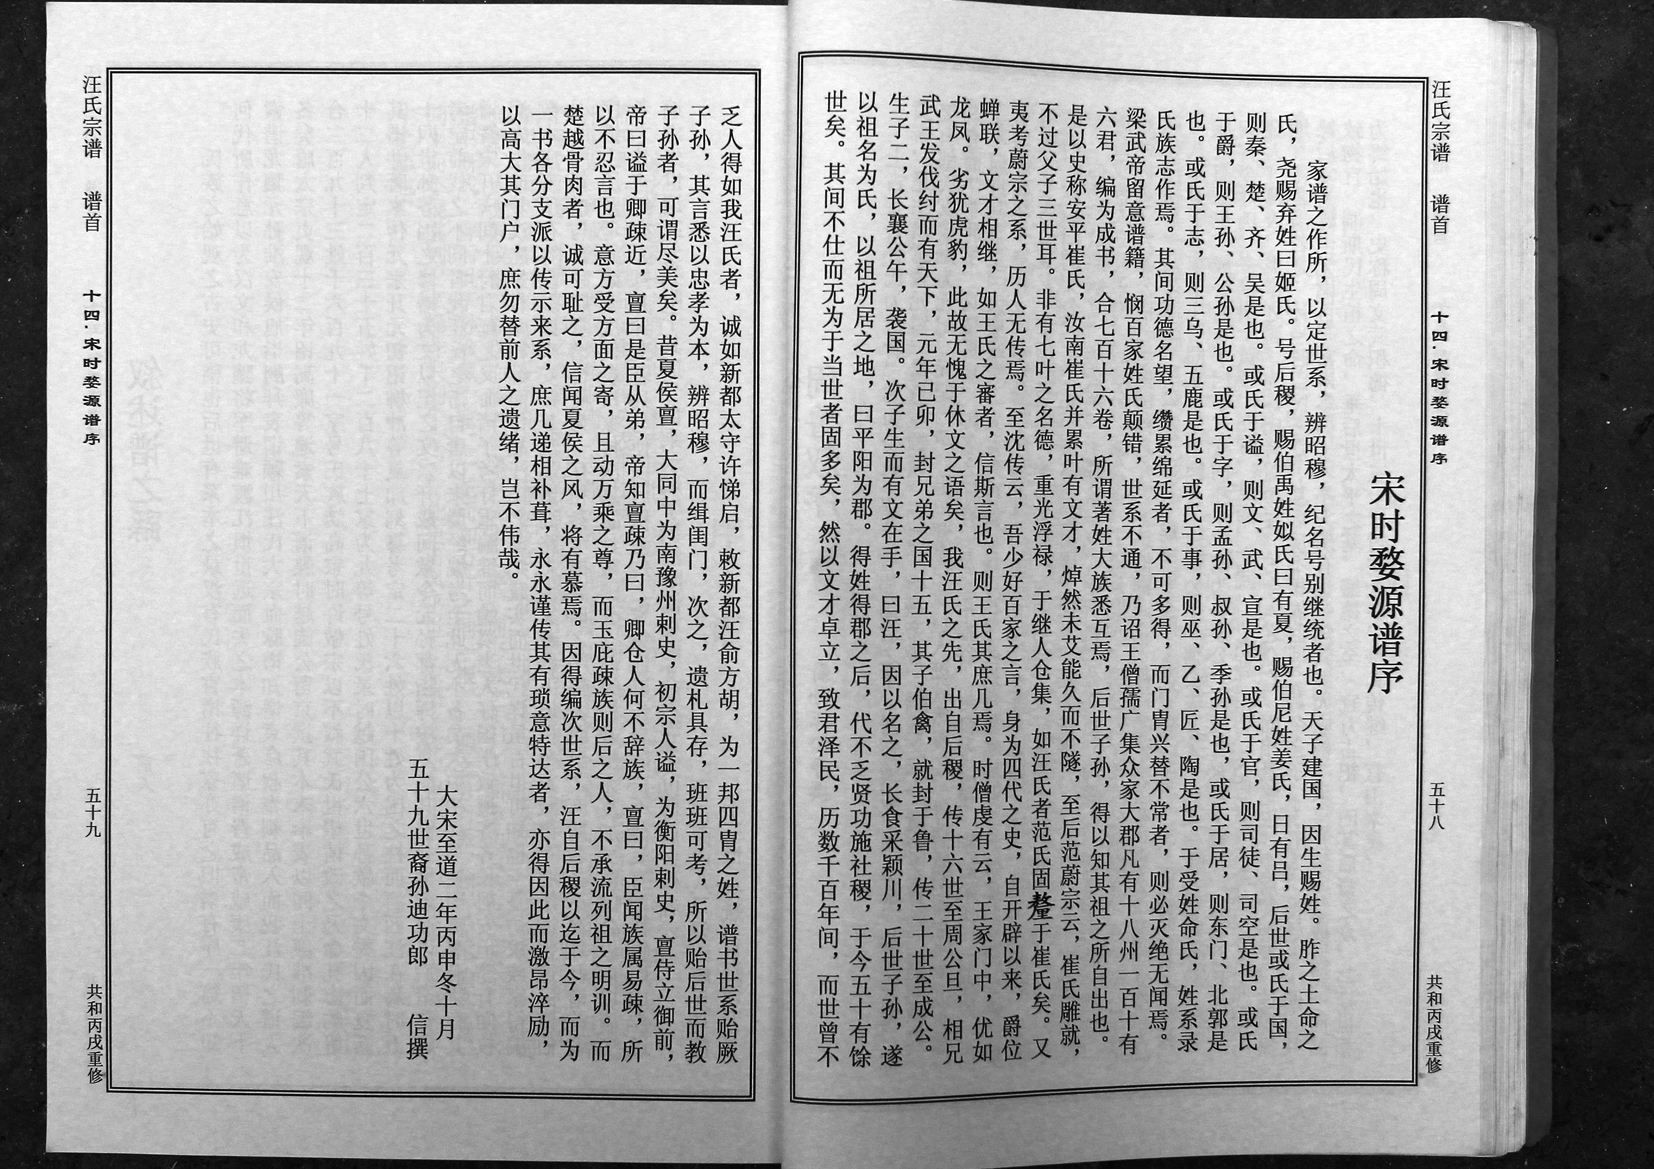 汪氏宗谱 谱首 十四·宋时婺源谱序 五十八 共和丙戌重修
宋时婺源谱序
家谱之作所，以定世系，辨昭穆，纪名号别继统者也。天子建国，因生赐姓。胙之土命之
氏，尧赐弃姓曰姬氏。号后稷，赐伯禹姓姒氏曰有夏，赐伯尼姓姜氏，日有吕，后世或氏于国，
则秦、楚、齐、吴是也。或氏于谥，则文、武、宣是也。或氏于官，则司徒、司空是也。或氏
于爵，则王孙、公孙是也。或氏于字，则孟孙、叔孙、季孙是也，或氏于居，则东门、北郭是
也。或氏于志，则三乌、五鹿是也。或氏于事，则巫、乙、匠、陶是也。于受姓命氏，姓系录
氏族志作焉。其间功德名望，缵累绵延者，不可多得，而门胄兴替不常者，则必灭绝无闻焉。
梁武帝留意谱籍，悯百家姓氏颠错，世系不通，乃诏王僧孺广集众家大郡凡有十八州一百十有
六君，编为成书，合七百十六卷，所谓著姓大族悉互焉，后世子孙，得以知其祖之所自出也。
是以史称安平崔氏，汝南崔氏并累叶有文才，焯然未艾能久而不隧，至后范蔚宗云，崔氏雕就，
不过父子三世耳。非有七叶之名德，重光浮禄，于继人仓集，如汪氏者范氏固釐于崔氏矣。又
夷考蔚宗之系，历人无传焉。至沈传云，吾少好百家之言，身为四代之史，自开辟以来，爵位
蝉联，文才相继，如王氏之審者，信斯言也。则王氏其庶几焉。时僧虔有云，王家门中，优如
龙凤。劣犹虎豹，此故无愧于休文之语矣，我汪氏之先，出自后稷，传十六世至周公旦，相兄
武王发伐纣而有天下，元年己卯，封兄弟之国十五，其子伯禽，就封于鲁，传二十世至成公。
生子二，长襄公午，袭国。次子生而有文在手，曰汪，因以名之，长食采颖川，后世子孙，遂
以祖名为氏，以祖所居之地，曰平阳为郡。得姓得郡之后，代不乏贤功施社稷，于今五十有馀
世矣。其间不仕而无为于当世者固多矣，然以文才卓立，致君泽民，历数千百年间，而世曾不
乏人得如我汪氏者，诚如新都太守许悌启，敕新都汪俞方胡，为一邦四胄之姓，谱书世系贻厥
子孙，其言悉以忠孝为本，辨昭穆，而缉闺门，次之，遗札具存，班班可考，所以贻后世而教
子孙者，可谓尽美矣。昔夏侯亶，大同中为南豫州剌史，初宗人谥，为衡阳剌史，亶侍立御前，
帝曰谥于卿疎近，亶曰是臣从弟，帝知亶疎乃曰，卿仓人何不辞族，亶曰，臣闻族属易疎，所
以不忍言也。意方受方面之寄，且动万乘之尊，而玉庇疎族则后之人，不承流列祖之明训。而
楚越骨肉者，诚可耻之，信闻夏侯之风，将有慕焉。因得编次世系，汪自后稷以迄于今，而为
一书各分支派以传示来系，庶几递相补葺，永永谨传其有琐意特达者，亦得因此而激昂淬励，
以高大其门户，庶勿替前人之遗绪，岂不伟哉。
大宋至道二年丙申冬十月
五十九世裔孙迪功郎 信撰
汪氏宗谱 谱首 十四·宋时婺源谱序 五十九 共和丙戌重修